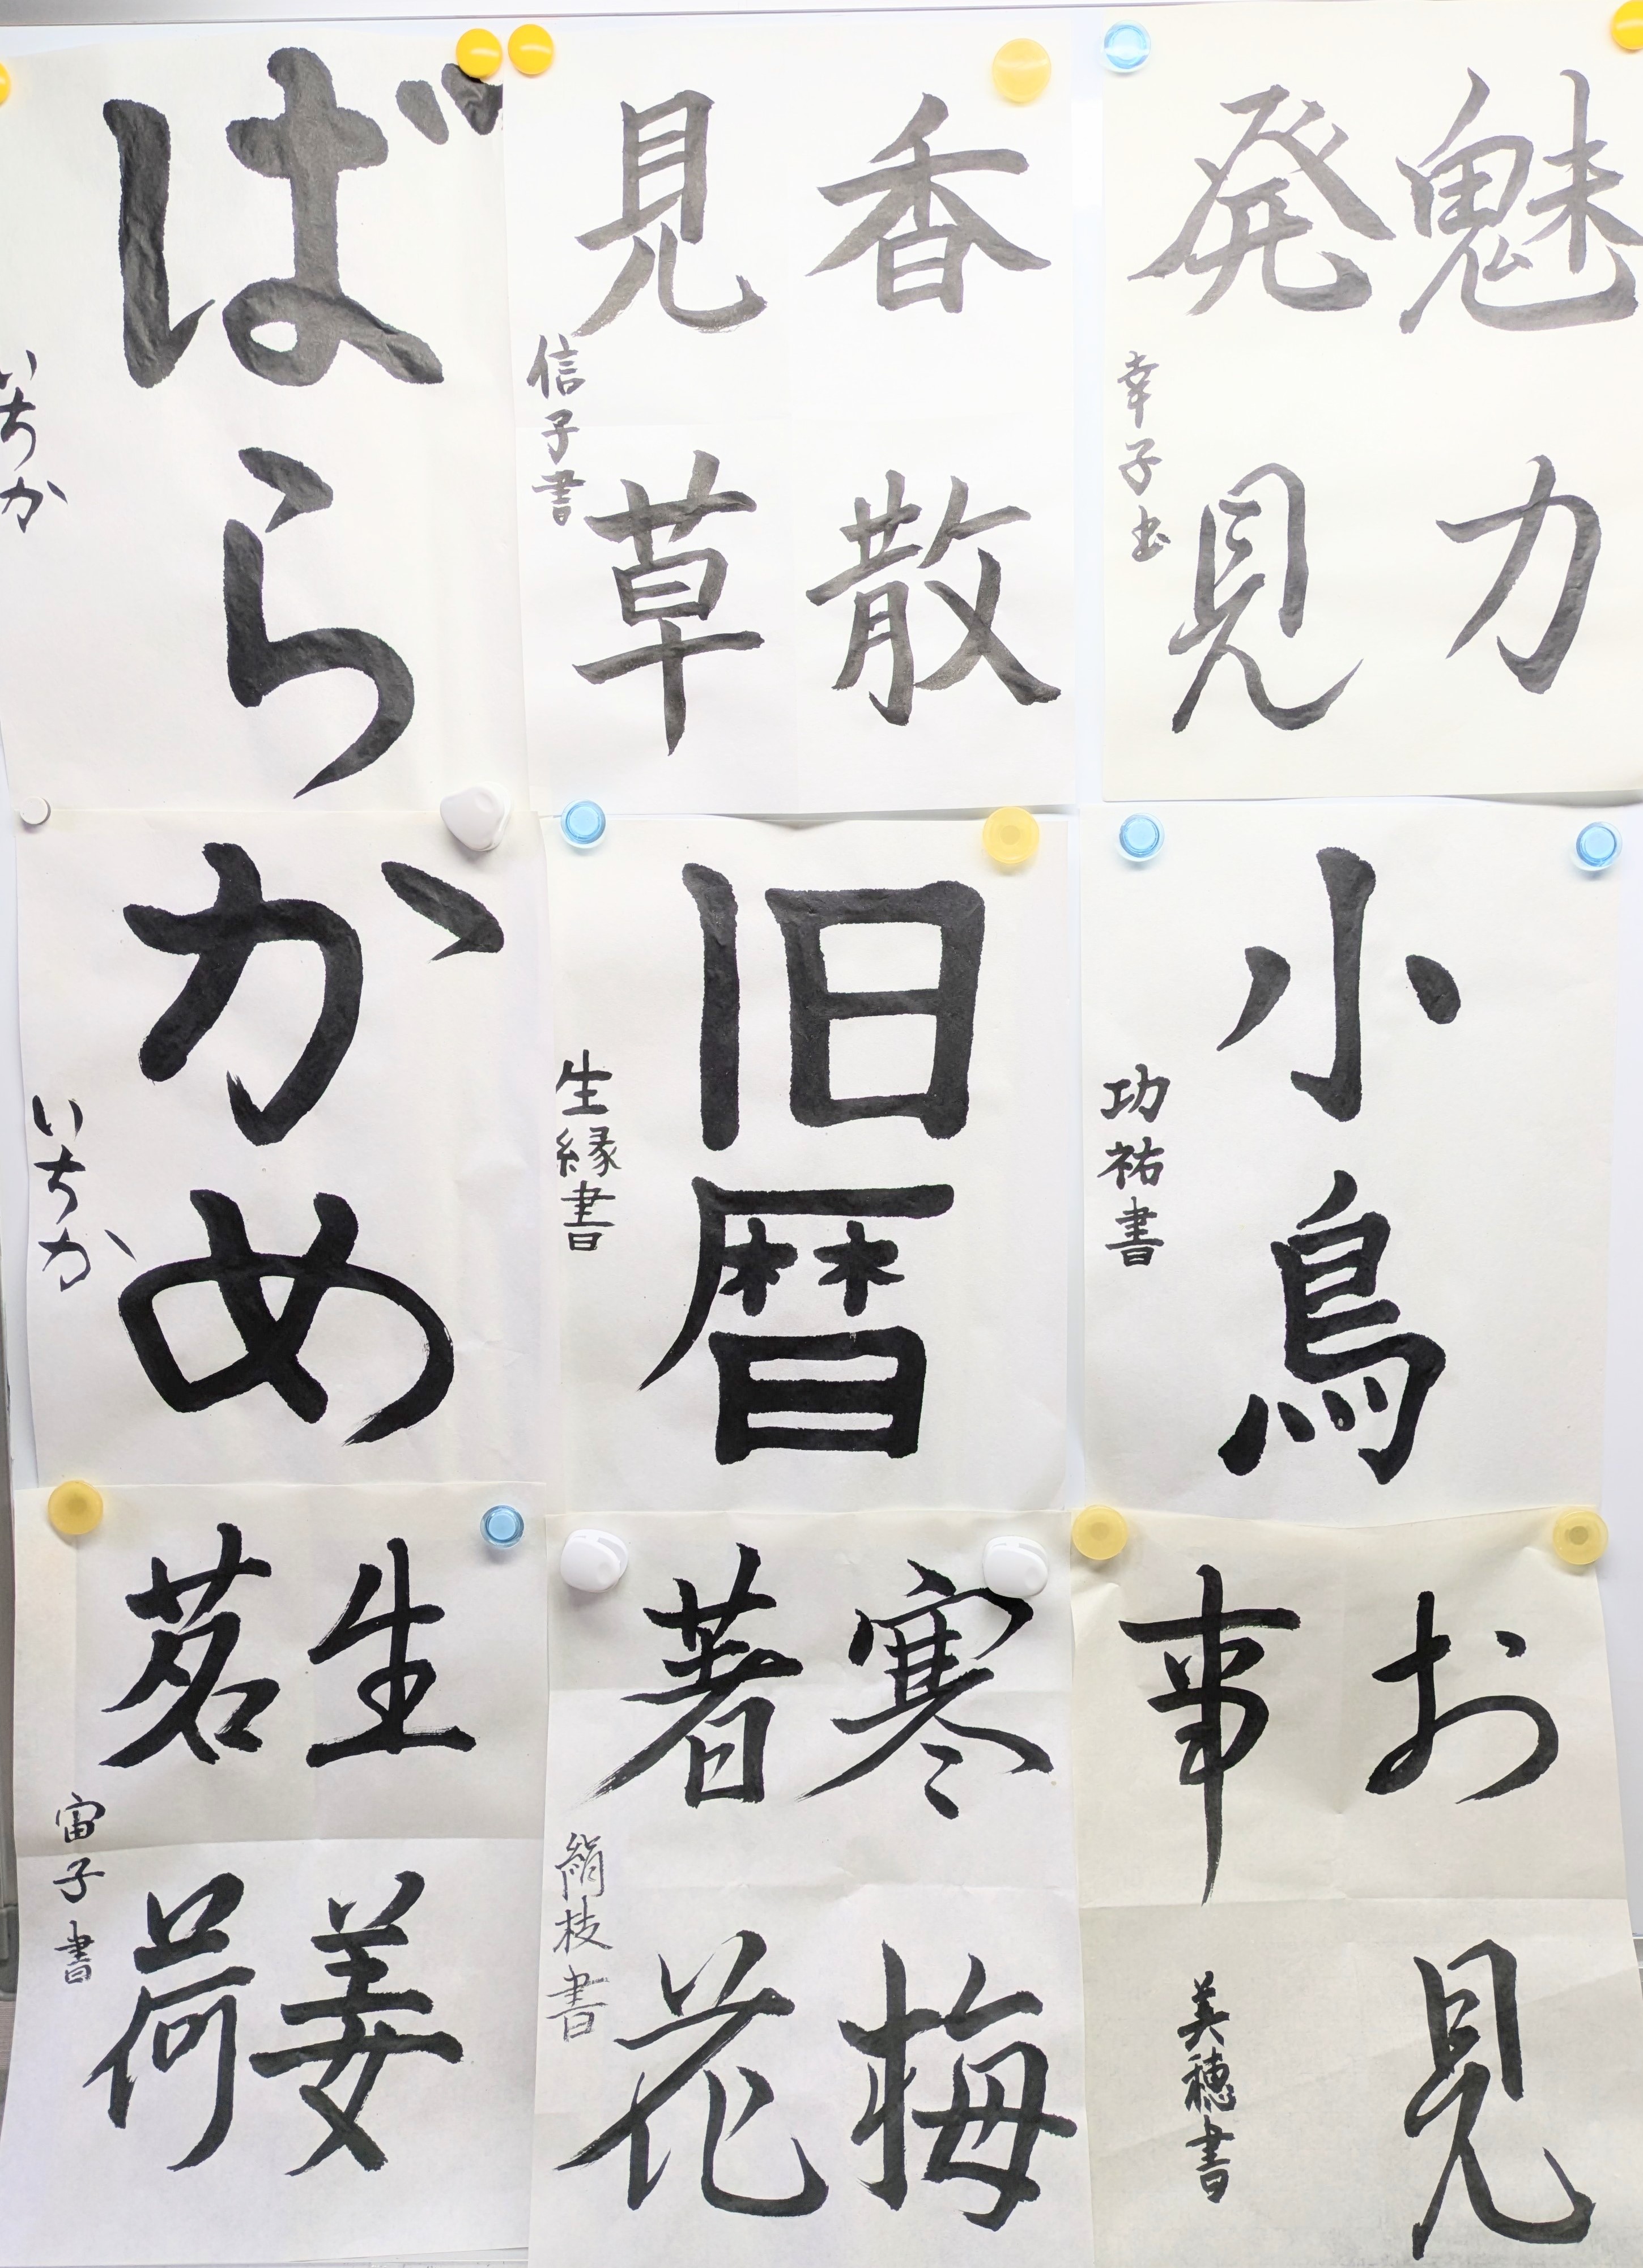 魅力
発見
幸子書
香散
見草
信子書
ばら
いちか
小鳥
功祐書
旧暦
生縁書
かめ
いちか
お見
事
美穂書
寒梅
著花
絹枝書
生姜
茗荷
宙子書